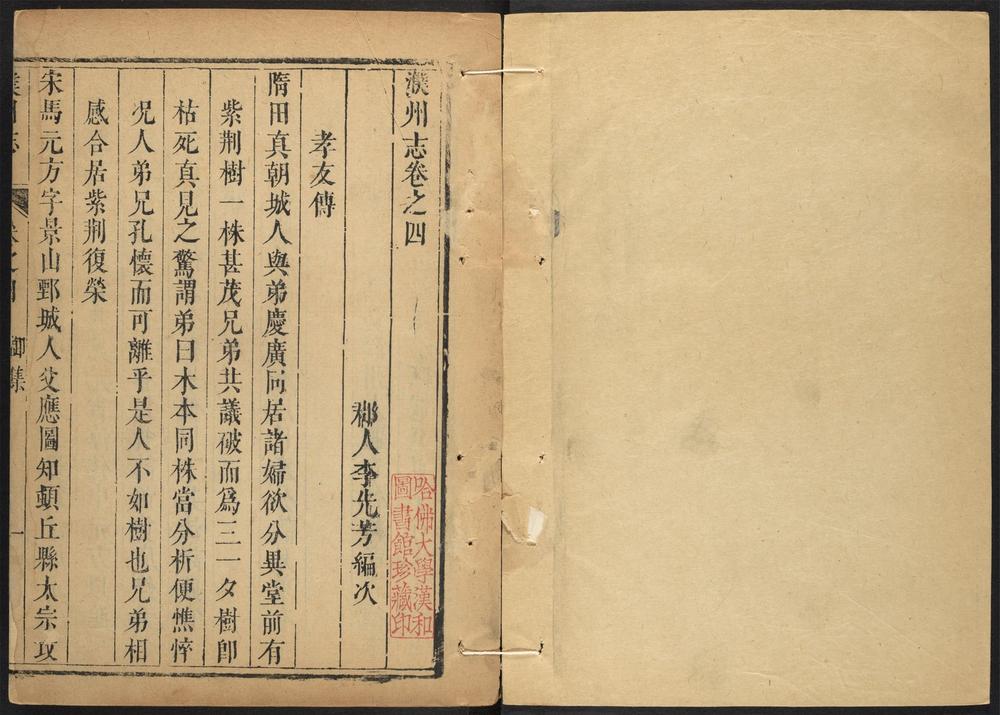 濮州志卷之四
郡人李先芳編次
哈佛大學漢和
圖書館珍藏印
孝友傳
隋田真朝城人與弟慶廣同居諸婦欲分異堂前有
紫荆樹一株甚茂兄弟共議破而爲三一夕樹卽
枯死真見之驚謂弟曰木本同株當分析便憔悴
况人弟兄孔懷而可離乎是人不如樹也兄弟相
感合居紫荆復榮
宋馬元方字景山鄄城人父應圖知頓丘縣太宗攻